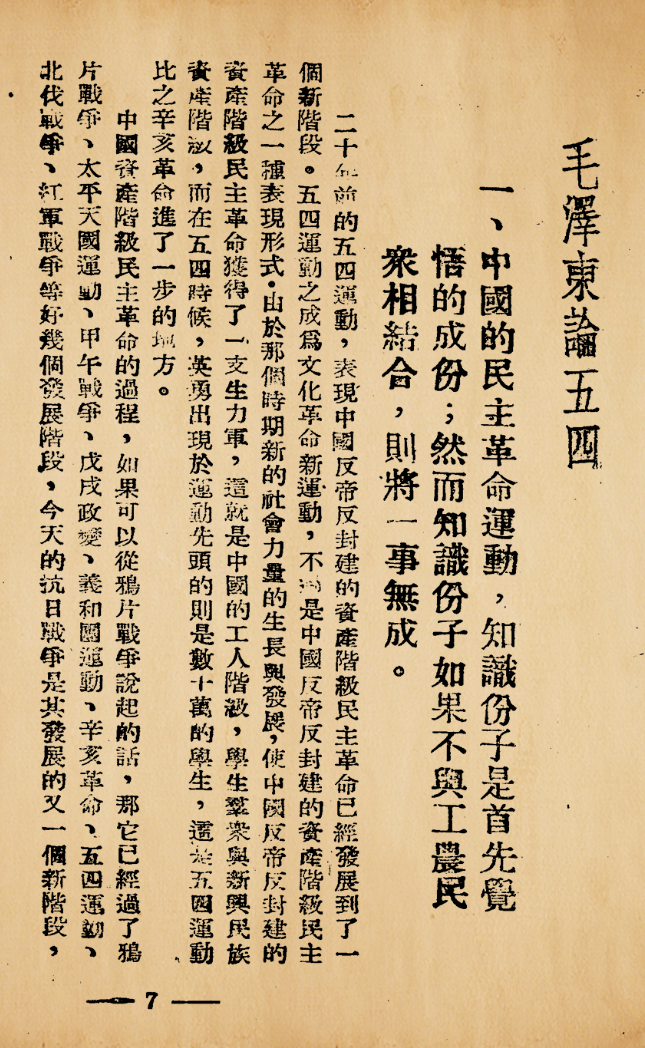 毛澤東論五四
一、中國的民主革命運動，知識份子是首先覺
悟的成份；然而知識份子如果不與工農民
衆相結合，則將一事無成。
二十年前的五四運動，表現中國反帝反封建的資產階級民主革命已經發展到了一
個新階段。五四運動之成爲文化革命新運動，不過是中國反帝反封建的資產階級民主
革命之一種表現形式。由於那個時期新的社會力量的生長與發展，使中國反帝反封建的
資產階級民主革命獲得了一支生力軍，這就是中國的工人階級，學生羣衆與新興民族
資產階級，而在五四時候，英勇出現於運動先頭的則是數十萬的學生，這是五四運動
比之辛亥革命進了一步的地方。
中國資產階級民主革命的過程，如果可以從鴉片戰爭說起的話，那它已經過了鴉
片戰爭、太平天國運動、甲午戰爭、戊戌政變、義和團運動、辛亥革命、五四運動、
北伐戰爭、紅軍戰爭等好幾個發展階段，今天的抗日戰爭是其發展的又一個新階段，
— 7 —